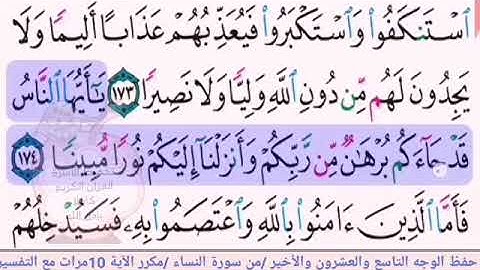 ٱسۡتَنكَفُواْ وَٱسۡتَكۡبَرُواْ فَيُعَذِّبُهُمۡ عَذَابًا أَلِيمٗا وَلَا
يَجِدُونَ لَهُم مِّن دُونِ ٱللَّهِ وَلِيّٗا وَلَا نَصِيرٗا ١٧٣ يَٰٓأَيُّهَا ٱلنَّاسُ
قَدۡ جَآءَكُم بُرۡهَٰنٞ مِّن رَّبِّكُمۡ وَأَنزَلۡنَآ إِلَيۡكُمۡ نُورٗا مُّبِينٗا ١٧٤
فَأَمَّا ٱلَّذِينَ ءَامَنُواْ بِٱللَّهِ وَٱعۡتَصَمُواْ بِهِۦ فَسَيُدۡخِلُهُمۡ
حفظ الوجه التاسع والعشرون والأخير /من سورة النساء /مكرر الآية 10مرات مع التفسير